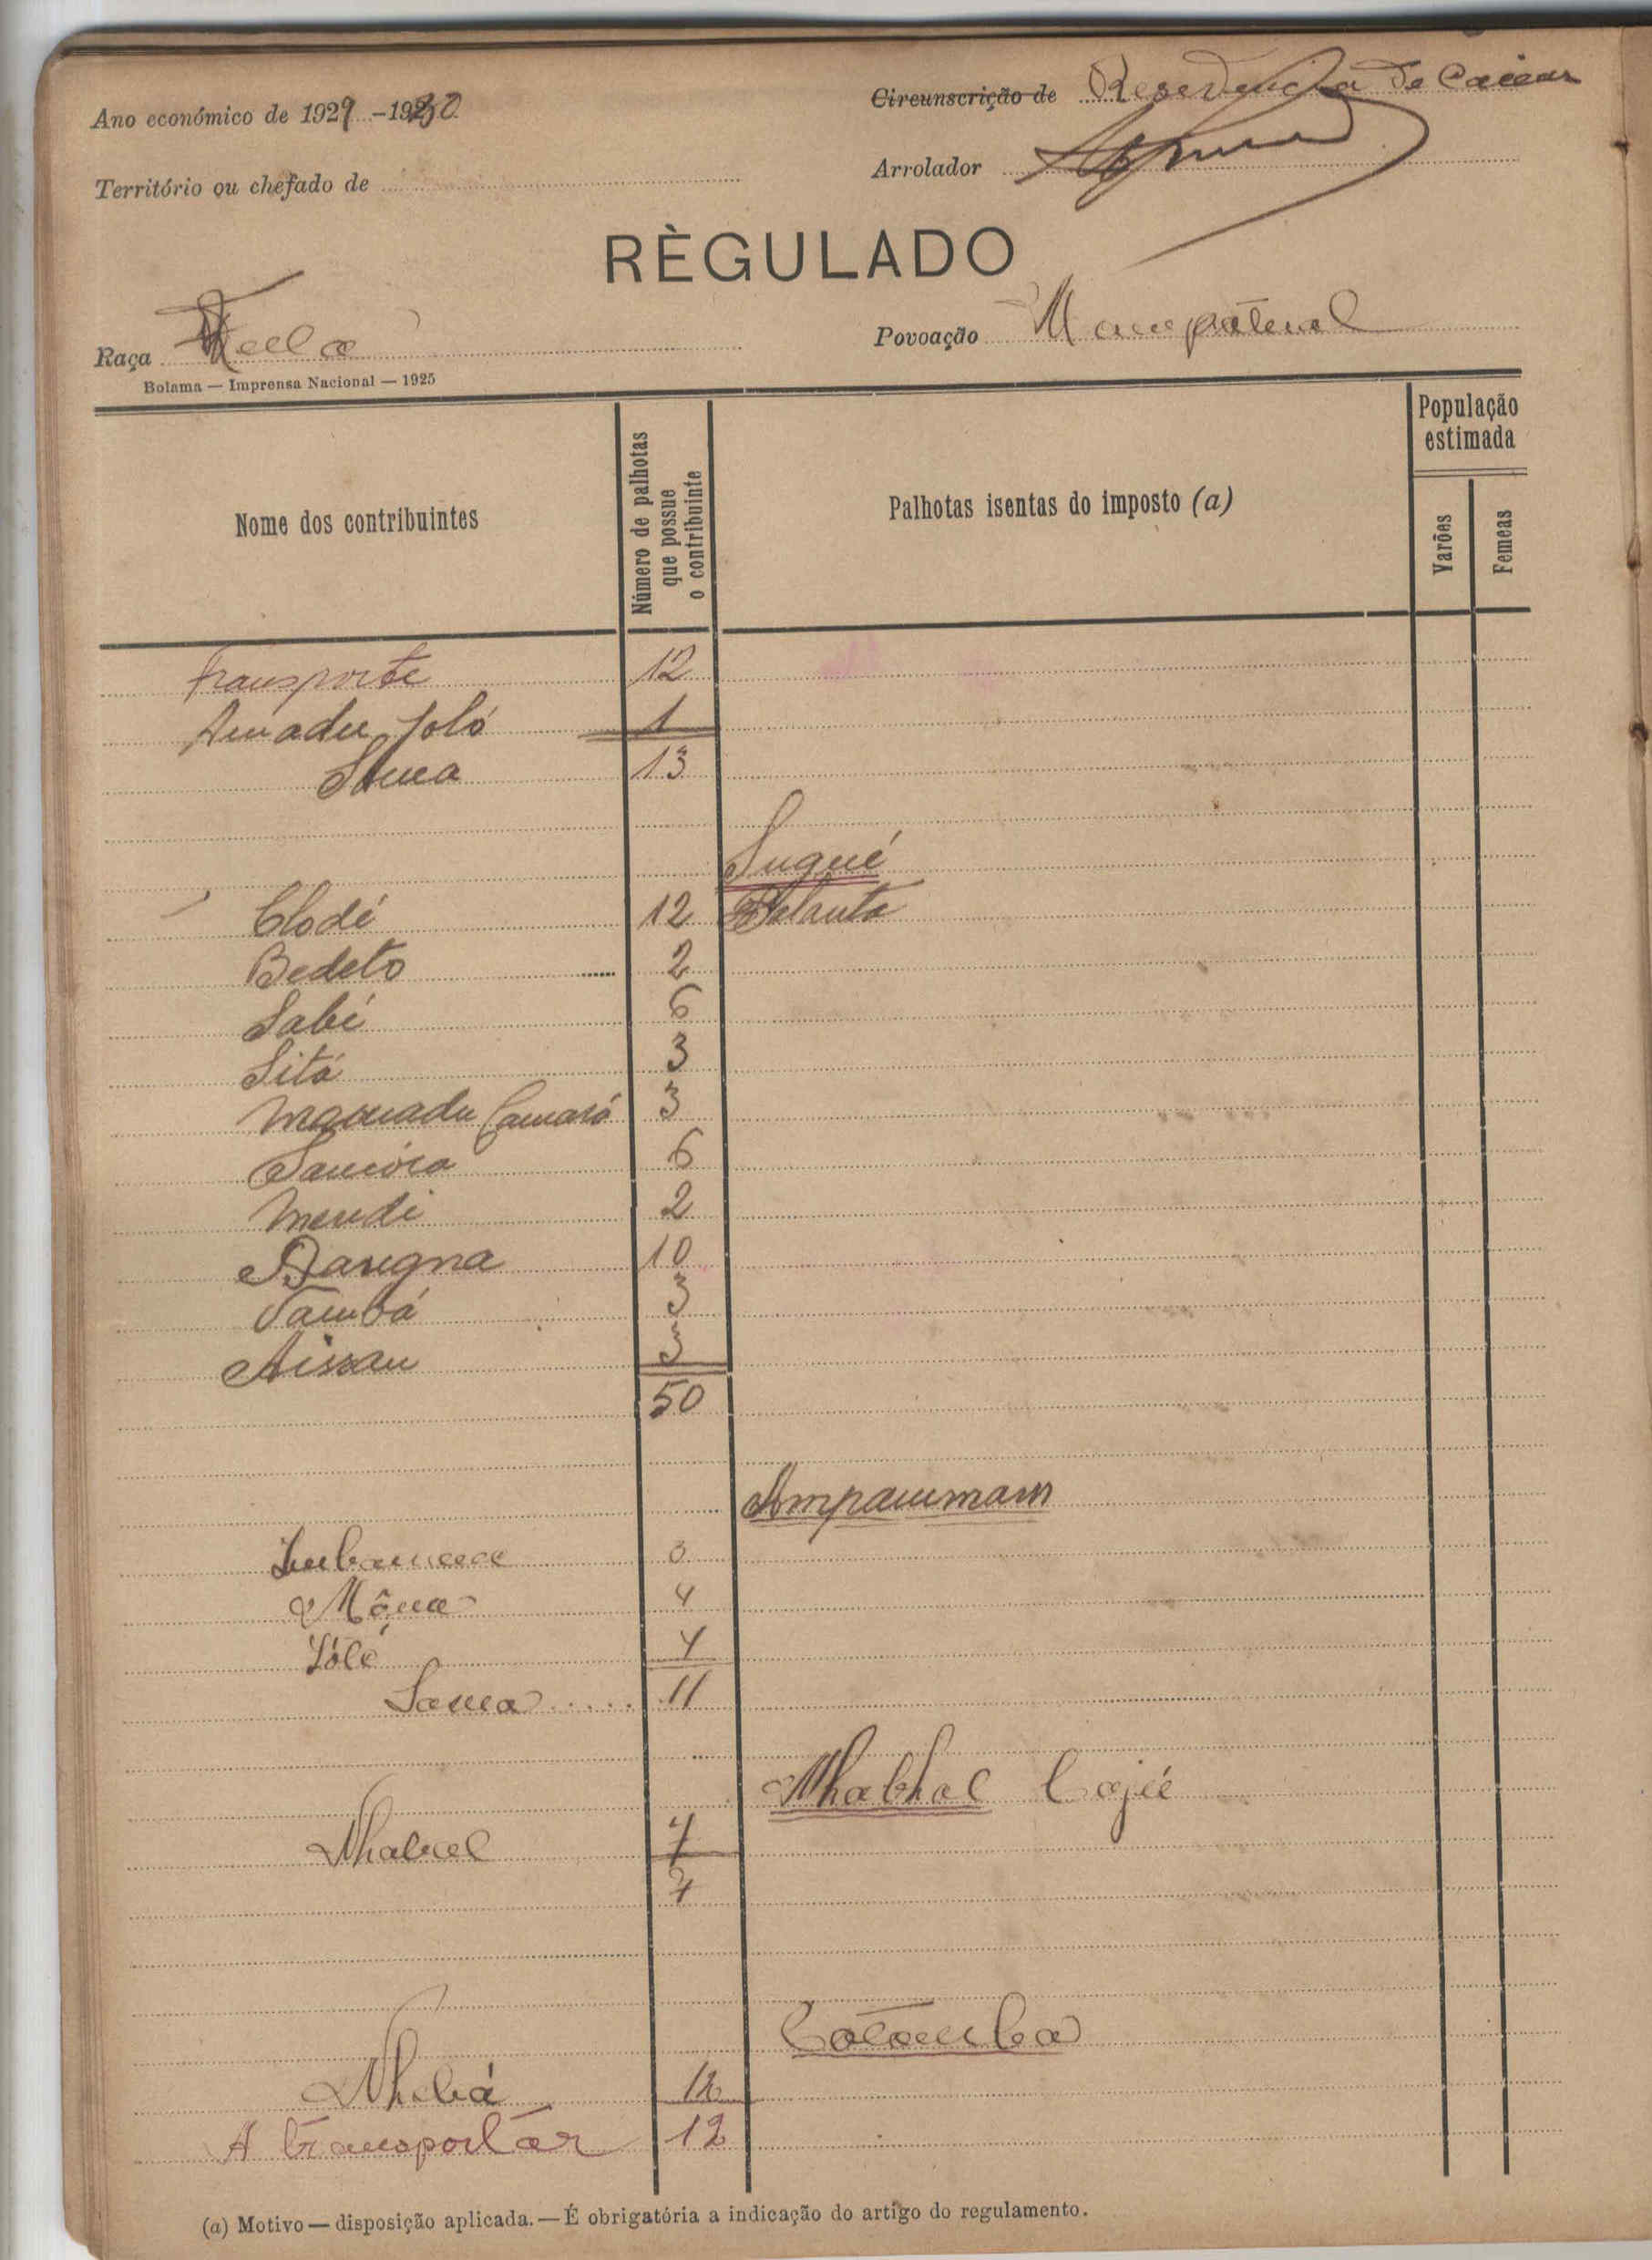 Ano económico de 1929-1930
Circunscrição de Residencia de Cacine
Território ou chefado de
Arrolador
RÈGULADO
Raça Fula
Povoação Mampatual
Bolama — Imprensa Nacional — 1925
Nome dos contribuintes
Número de palhotas que possue o contribuinte
Palhotas isentas do imposto (a)
População estimada
Varões
Femeas
Transporte 12
Amadu Joló 1
Soma 13
Suqué
Clodé 12 Balanta
Bedeto 2
Sabé 6
Sitá 3
Mamadu Camará 3
6
Mendi 2
10
Tambá 3
Aissau 3
50
3
Môna 4
Iólé 4
Soma 11
Nhabhal Cajú
7
7
Catomba
Nhabá 12
A transportar 12
(a) Motivo — disposição aplicada. — É obrigatória a indicação do artigo do regulamento.